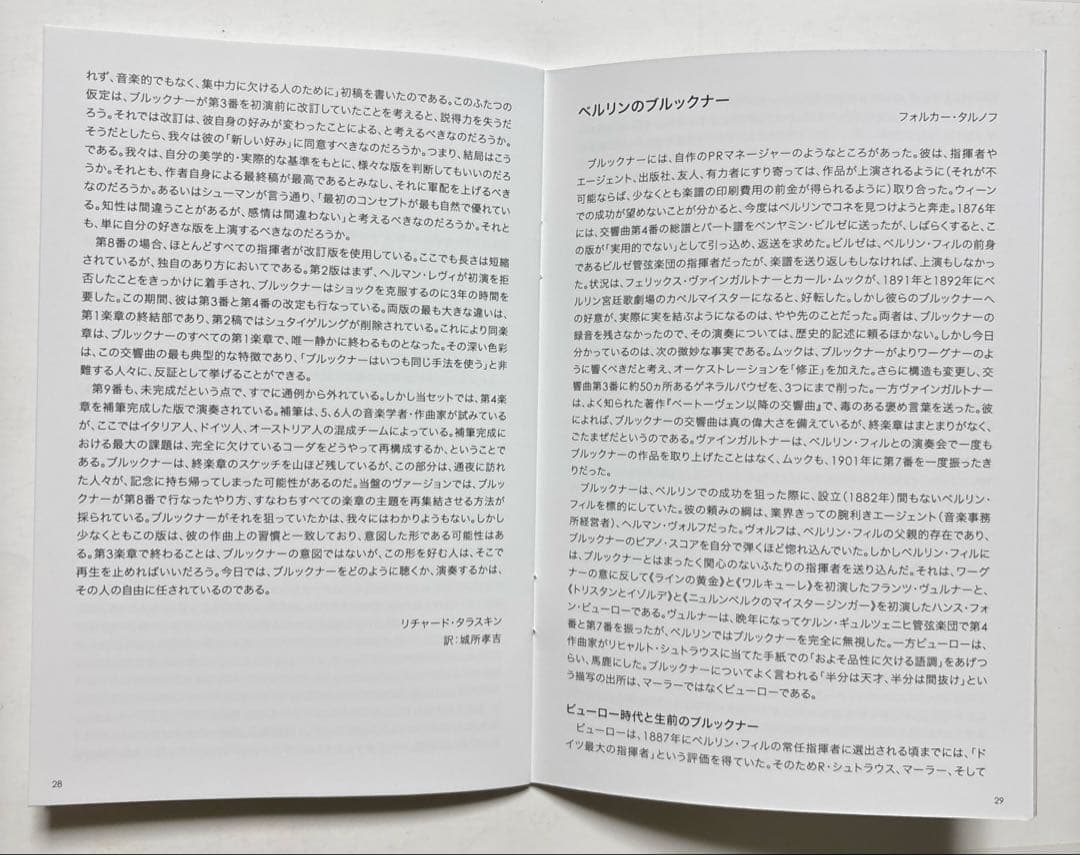 れず、音楽的でもなく、集中力に欠ける人のために」初稿を書いたのである。このふたつの
仮定は、ブルックナーが第3番を初演前に改訂していたことを考えると、説得力を失うだ
ろう。それでは改訂は、彼自身の好みが変わったことによる、と考えるべきなのだろうか。
そうだとしたら、我々は彼の「新しい好み」に同意すべきなのだろうか。つまり、結局はこう
である。我々は、自分の美学的・実際的な基準をもとに、様々な版を判断してもいいのだろ
うか。それとも、作者自身による最終稿が最高であるとみなし、それに軍配を上げるべき
なのだろうか。あるいはシューマンが言う通り、「最初のコンセプトが最も自然で優れてい
る。知性は間違うことがあるが、感情は間違わない」と考えるべきなのだろうか。それと
も、単に自分の好きな版を上演するべきなのだろうか。
第8番の場合、ほとんどすべての指揮者が改訂版を使用している。ここでも長さは短縮
されているが、独自のあり方においてである。第2版はまず、ヘルマン・レヴィが初演を拒
否したことをきっかけに着手され、ブルックナーはショックを克服するのに3年の時間を
要した。この期間、彼は第3番と第4番の改定も行なっている。両版の最も大きな違いは、
第1楽章の終結部であり、第2稿ではシュタイゲルングが削除されている。これにより同楽
章は、ブルックナーのすべての第1楽章で、唯一静かに終わるものとなった。その深い色彩
は、この交響曲の最も典型的な特徴であり、「ブルックナーはいつも同じ手法を使う」と非
難する人々に、反証として挙げることができる。
第9番も、未完成だという点で、すでに通例から外れている。しかし当セットでは、第4楽
章を補筆完成した版で演奏されている。補筆は、5、6人の音楽学者・作曲家が試みている
が、ここではイタリア人、ドイツ人、オーストリア人の混成チームによっている。補筆完成に
おける最大の課題は、完全に欠けているコーダをどうやって再構成するか、ということで
ある。ブルックナーは、終楽章のスケッチを山ほど残しているが、この部分は、通夜に訪れ
た人々が、記念に持ち帰ってしまった可能性があるのだ。当盤のヴァージョンでは、ブルッ
クナーが第8番で行なったやり方、すなわちすべての楽章の主題を再集結させる方法が
採られている。ブルックナーがそれを狙っていたかは、我々にはわかりようもない。しかし
少なくともこの版は、彼の作曲上の習慣と一致しており、意図した形である可能性はあ
る。第3楽章で終わることは、ブルックナーの意図ではないが、この形を好む人は、そこで
再生を止めればいいだろう。今日では、ブルックナーをどのように聴くか、演奏するかは、
その人の自由に任されているのである。
リチャード・タラスキン
訳：城所孝吉
28
ベルリンのブルックナー
フォルカー・タルノフ
ブルックナーには、自作のPRマネージャーのようなところがあった。彼は、指揮者や
エージェント、出版社、友人、有力者にすり寄っては、作品が上演されるように（それが不
可能ならば、少なくとも楽譜の印刷費用の前金が得られるように）取り合った。ウィーン
での成功が望めないことが分かると、今度はベルリンでコネを見つけようと奔走。1876年
には、交響曲第4番の総譜とパート譜をベンヤミン・ビルゼに送ったが、しばらくすると、こ
の版が「実用的でない」として引っ込め、返送を求めた。ビルゼは、ベルリン・フィルの前身
であるビルゼ管弦楽団の指揮者だったが、楽譜を送り返しもしなければ、上演もしなかっ
た。状況は、フェリックス・ヴァインガルトナーとカール・ムックが、1891年と1892年にベ
ルリン宮廷歌劇場のカペルマイスターになると、好転した。しかし彼らのブルックナーへ
の好意が、実際に実を結ぶようになるのは、やや先のことだった。両者は、ブルックナーの
録音を残さなかったので、その演奏については、歴史的記述に頼るほかない。しかし今日
分かっているのは、次の微妙な事実である。ムックは、ブルックナーがよりワーグナーのよ
うに響くべきだと考え、オーケストレーションを「修正」を加えた。さらに構造も変更し、交
響曲第3番に約50ヵ所あるゲネラルパウゼを、3つにまで削った。一方ヴァインガルトナー
は、よく知られた著作『ベートーヴェン以降の交響曲』で、毒のある褒め言葉を送った。彼
によれば、ブルックナーの交響曲は真の偉大さを備えているが、終楽章はまとまりがなく、
ごたまぜだというのである。ヴァインガルトナーは、ベルリン・フィルとの演奏会で一度も
ブルックナーの作品を取り上げたことはなく、ムックも、1901年に第7番を一度振ったき
りだった。
ブルックナーは、ベルリンでの成功を狙った際に、設立（1882年）間もないベルリン・
フィルを標的にしていた。彼の頼みの綱は、業界きっての腕利きエージェント（音楽事務
所経営者）、ヘルマン・ヴォルフだった。ヴォルフは、ベルリン・フィルの父親的存在であり、
ブルックナーのピアノ・スコアを自分で弾くほど惚れ込んでいた。しかしベルリン・フィルに
は、ブルックナーとはまったく関心のないふたりの指揮者を送り込んだ。それは、ワーグ
ナーの意に反して《ラインの黄金》と《ワルキューレ》を初演したフランツ・ヴュルナーと、
《トリスタンとイゾルデ》と《ニュルンベルクのマイスタージンガー》を初演したハンス・フォ
ン・ビューローである。ヴュルナーは、晩年になってケルン・ギュルツェニヒ管弦楽団で第4
番と第7番を振ったが、ベルリンではブルックナーを完全に無視した。一方ビューローは、
作曲家がリヒャルト・シュトラウスに当てた手紙での「およそ品性に欠ける語調」をあげつ
らい、馬鹿にした。ブルックナーについてよく言われる「半分は天才、半分は間抜け」とい
う描写の出所は、マーラーではなくビューローである。
ビューロー時代と生前のブルックナー
ビューローは、1887年にベルリン・フィルの常任指揮者に選出される頃までには、「ド
イツ最大の指揮者」という評価を得ていた。そのためR・シュトラウス、マーラー、そして
29